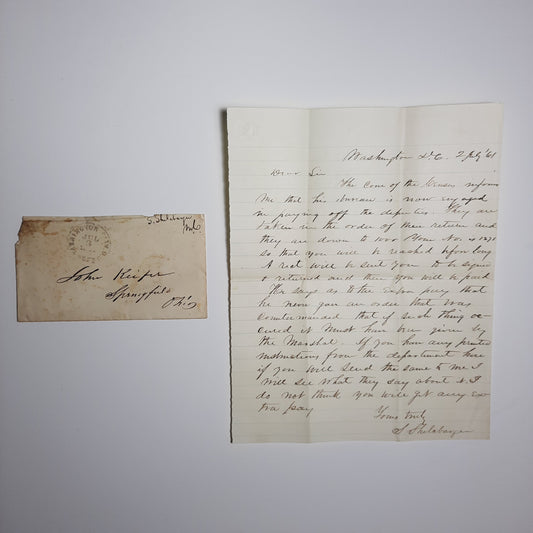 S. Shellabarger
M.C.
WASHINGTON
JUL
2
John Keifer
Springfield
Ohio
Washington D.C. 2 July '61
Dear Sir
The Com of the Census informs
me that his bureau is now engaged
in paying off the deputies. They are
taken in the order of their return and
they are down to 1000 Your No. is 1271
so that you will be reached before long
A rect will be sent you to be signed
& returned and then you will be paid
He says as to the extra pay that
he never gave an order that was
countermanded that if such thing oc-
cured it must have been given by
the Marshal. If you have any printed
instructions from the department here
if you will send the same to me I
will see what they say about it. I
do not think you will get any ex-
tra pay
Yours truly
S Shellabarger